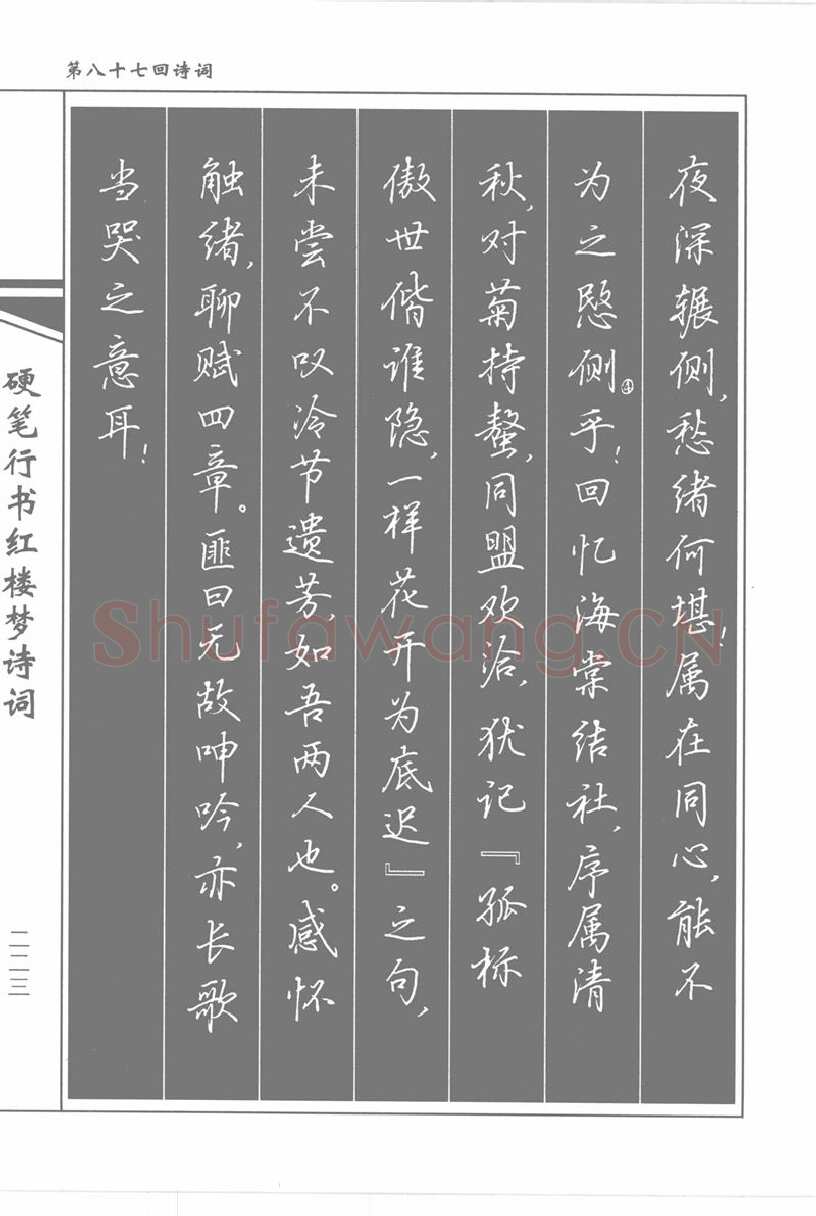 第八十七回诗词
夜深辗侧，愁绪何堪！属在同心，能不
为之愍恻④乎！回忆海棠结社，序属清
秋，对菊持螯，同盟欢洽，犹记『孤标
傲世偕谁隐，一样花开为底迟』之句，
未尝不叹冷节遗芳，如吾两人也。感怀
触绪，聊赋四章。匪曰无故呻吟，亦长歌
当哭之意耳！
硬笔行书红楼梦诗词
二二三
Shufawang.CN